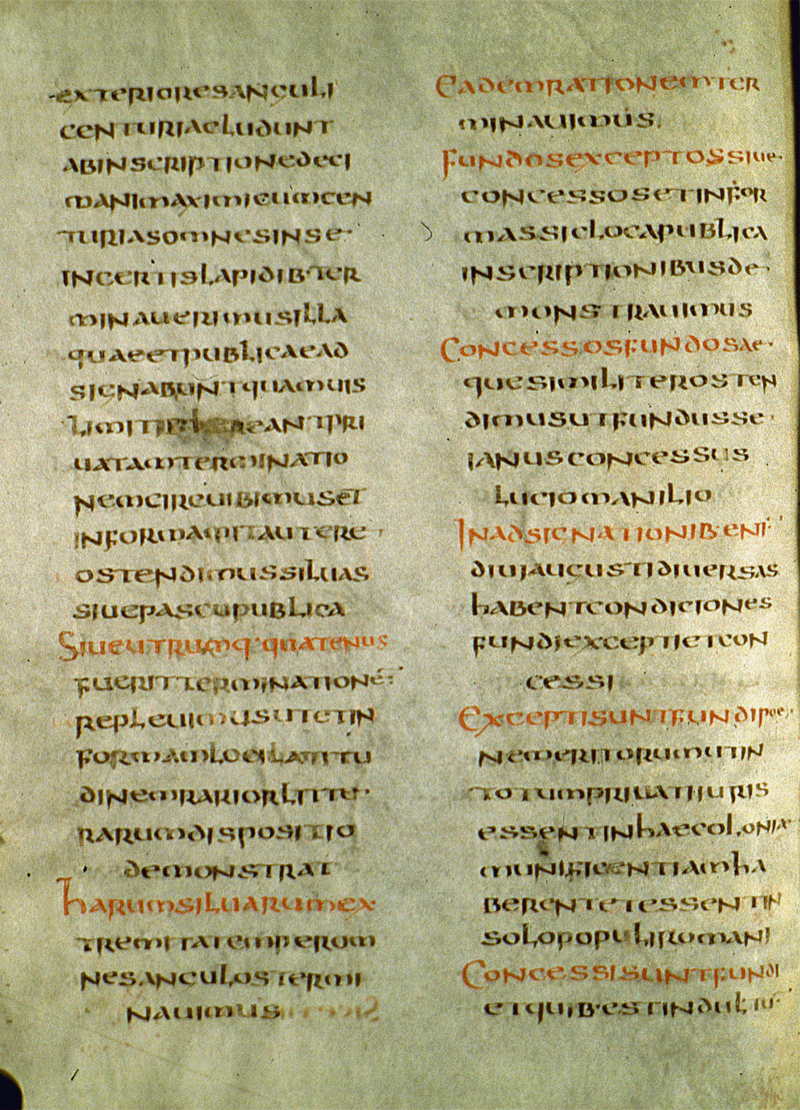 EXTERIORESANGULI
CENTURIAELUDUNT
ABINSCRIPTIONEDECI
MANIMAXIMIEUMCEN
TURIASOMNESINSE·
INCERTISLAPIDIB·TER
MINAUERIMUSILLA
QUAEETPUBLICAEAD
SIGNABUNTQUAMUIS
ANTPRI
UATAMTERMINATIO
NEMCIRCUIBIMUSET
INFORMA
OSTENDIMUSSILUAS
SIUEPASCUPUBLICA
SIUEUTRUMQ·QUATENUS
FUERITTERMINATIONE·
REPLEUIMUSUTETIN
FORMAMLOCILATITU
DINEMRARIORLITU·
RARUMDISPOSITIO
DEMONSTRAT
HARUMSILUARUMEX
TREMITATEMPEROM
NESANGULOSTERMI
NAUIMUS
EADEMRATIONEMTER
MINAUIMUS
FUNDOSEXCEPTOSSIUE·
CONCESSOSETINFOR
MASSICLOCAPUBLICA
INSCRIPTIONIBUSDE·
MONSTRAUIMUS
CONCESSOSFUNDOSAE·
QUESIMILITEROSTEN
DIMUSUTFUNDUSSE·
IANUSCONCESSUS
LUCIOMANILIO
INADSIGNATIONIB·ENI·
DIUIAUGUSTIDIUERSAS
HABENTCONDICIONES
FUNDIEXCEPTIETCON
CESSI
EXCEPTISUNTFUNDIPOE·
NEMERITORUMUTIN
TOTUMPRIUATIIURIS
ESSENTINHAECOLONIA·
MUNIFICENTIAMHA
BERENTETESSENTIN
SOLOPOPULIROMANI
CONCESSISUNTFUNDI
ETQUIB·ESTINDULTU·